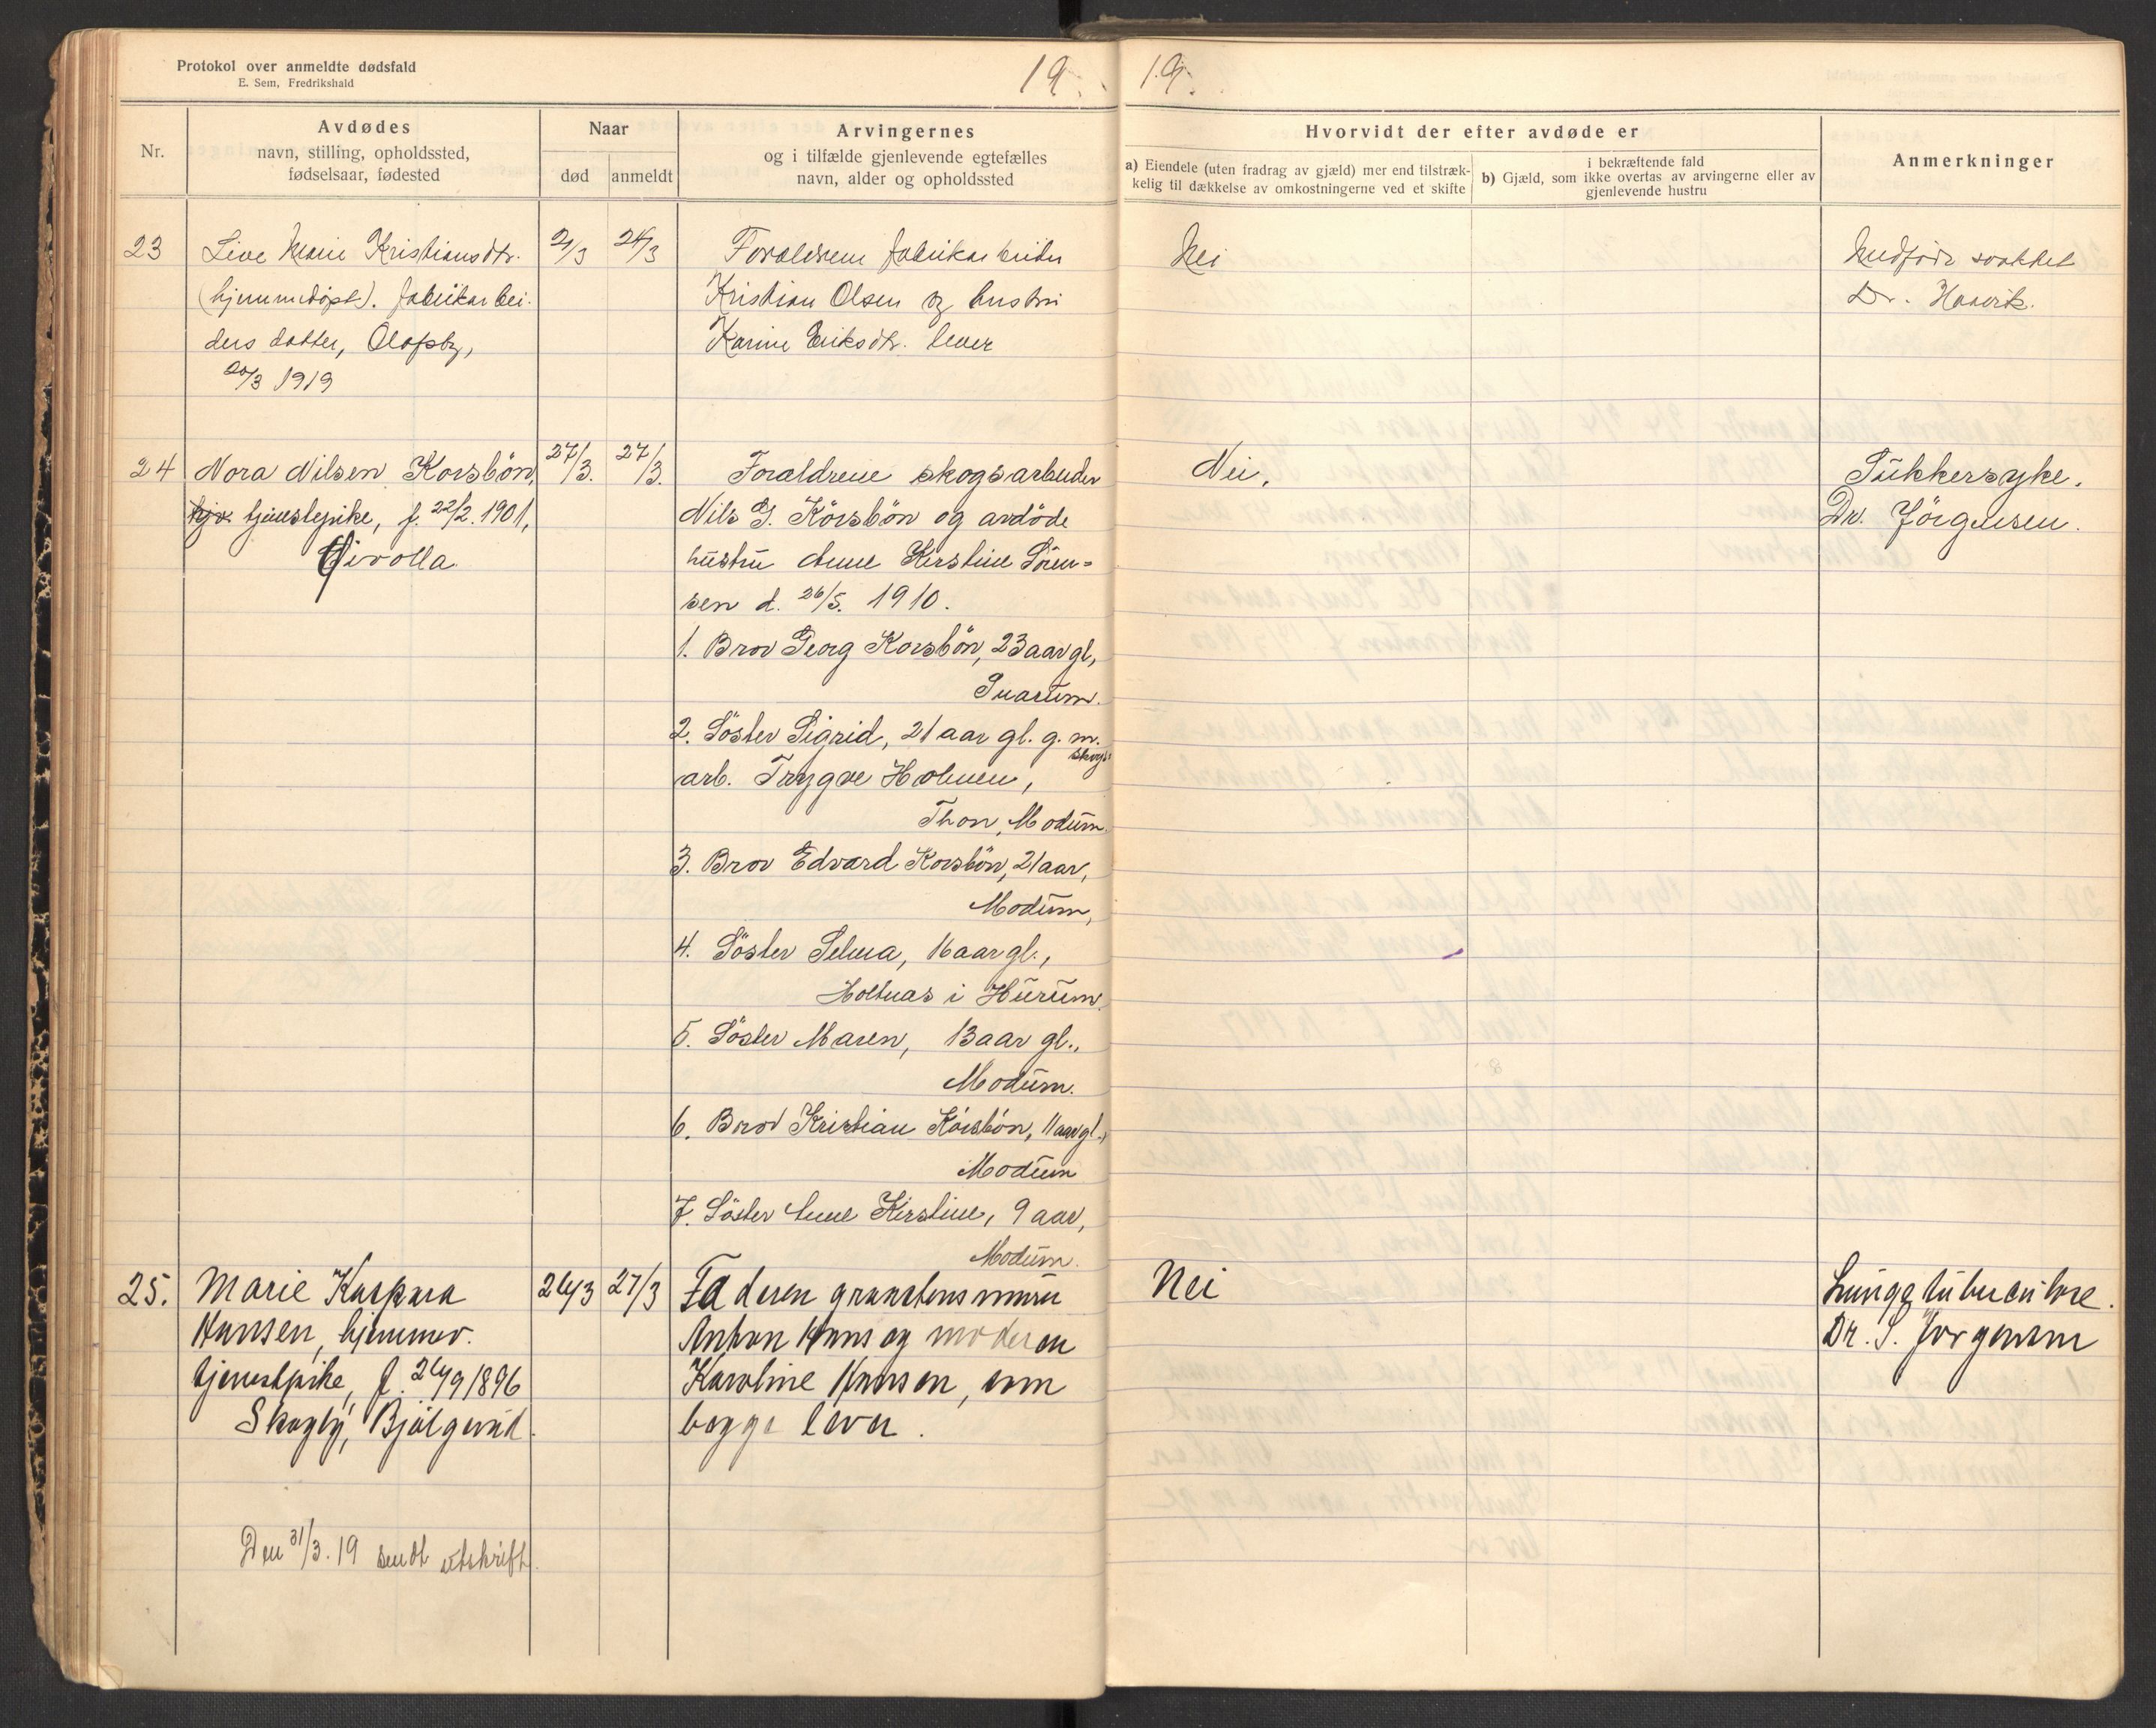 Protokol over anmeldte dødsfald
E. Sem, Fredrikshald
19.
19.
Nr.
Avdødes
navn, stilling, opholdssted,
fødselsaar, fødested
Naar
død
anmeldt
Arvingernes
og i tilfælde gjenlevende egtefælles
navn, alder og opholdssted
Hvorvidt der efter avdøde er
a) Eiendele (uten fradrag av gjæld) mer end tilstræk-
kelig til dækkelse av omkostningerne ved et skifte
i bekræftende fald
b) Gjæld, som ikke overtas av arvingerne eller av
gjenlevende hustru
Anmerkninger
23
Live Marie Kristiansdtr.
(hjemmedøpt). fabrikarbei-
ders datter, Olafsby,
20/3 1919
21/3
24/3
Forældrene fabrikarbeider
Kristian Olsen og hustru
Karine Eriksdtr. lever
Nei
Medfødt svakhet
Dr. Haavik.
24
Nora Nilsen Korsbön,
tjenestepike, f. 22/2. 1901,
27/3.
27/3.
Forældrene skogsarbeider
Nils G. Korsbön og avdöde
hustru Anne Kirstine Sören-
sen d. 26/5. 1910.
1. Bror Georg Korsbön, 23 aar gl,
Snarum.
2. Söster Sigrid, 21 aar gl. g. m. skogs-
arb. Trygve Holmen,
Thon, Modum.
3. Bror Edvard Korsbön, 21 aar,
Modum,
4. Söster Selma, 16 aar gl.,
Holtnæs i Hurum.
5. Söster Maren, 13 aar gl.,
Modum.
6. Bror Kristian Korsbön, 11 aar gl.,
Modum
7. Söster Anne Kirstine, 9 aar,
Modum.
Nei.
Sukkersyke.
Dr. Jörgensen.
25.
Marie Kaspara
Hansen, hjemmev.
tjenestpike, f. 26/9 1896
Skogly, Bjølgerud.
26/3
27/3
Faderen graastensmurer
Anton Hans og moderen
Karoline Hansen, som
begge lever.
Nei
Lungetuberculose.
Dr. S. Jørgensen
Den 31/3. 19 sendt utskrift.